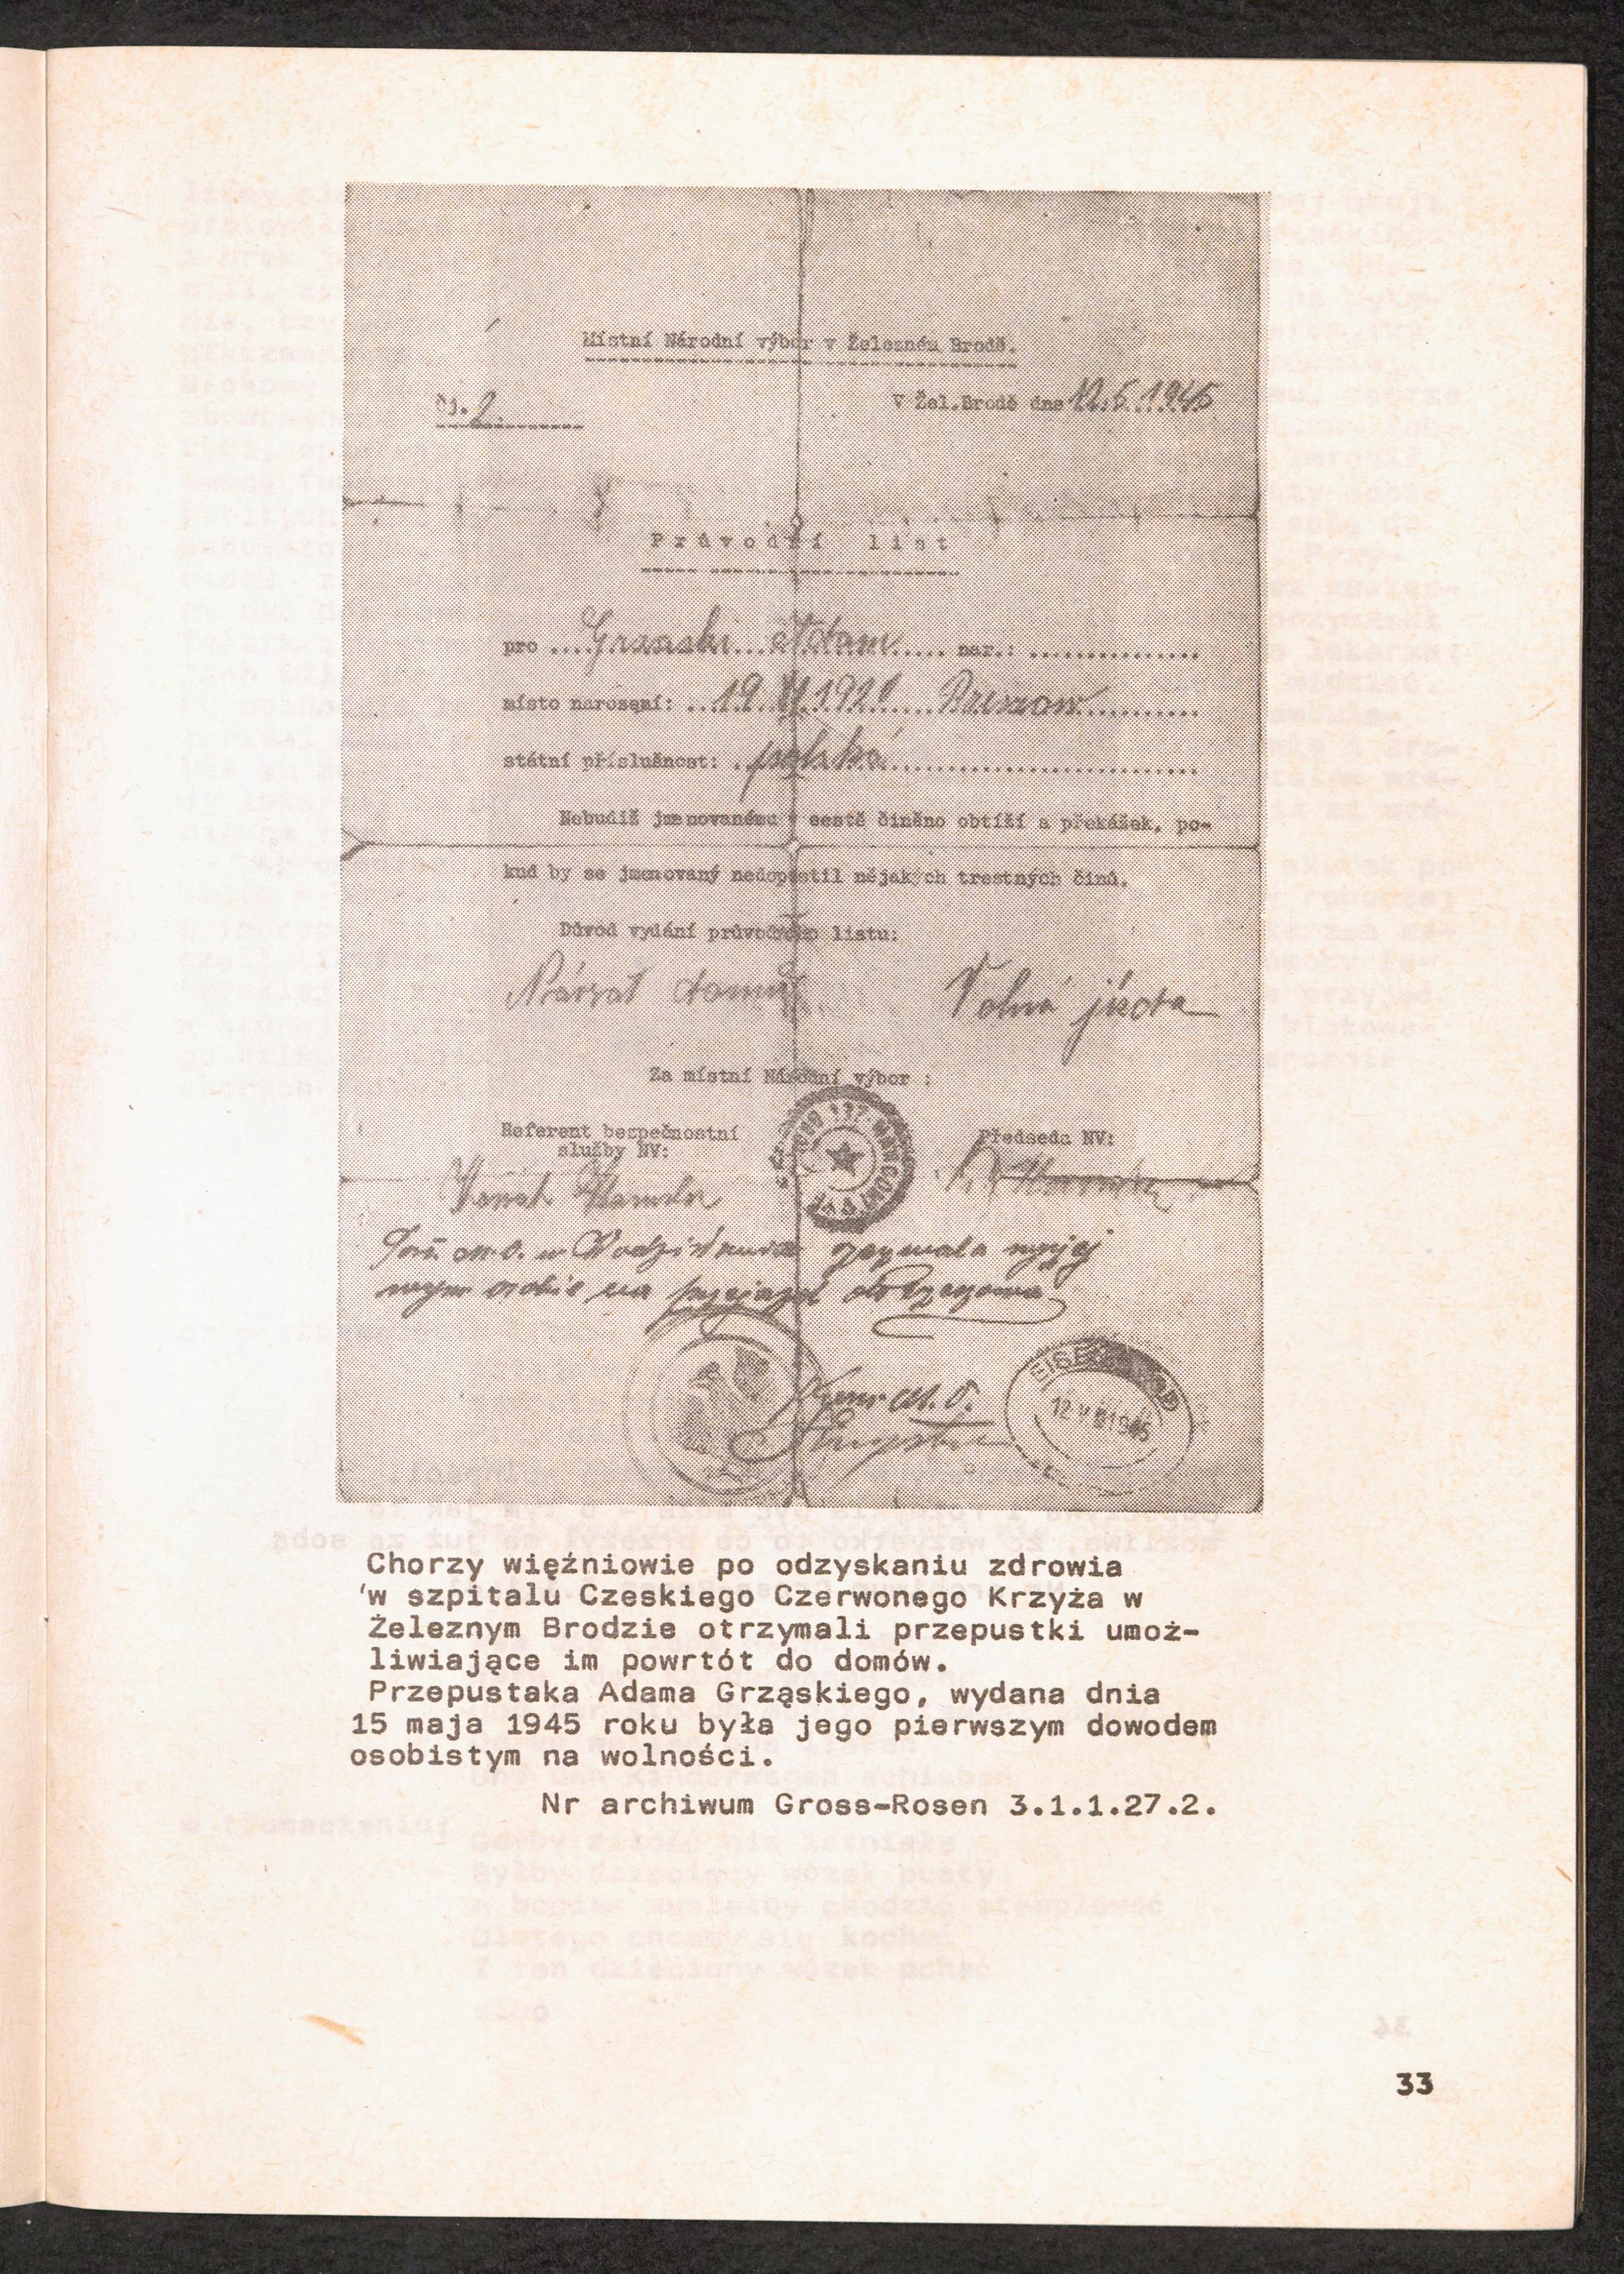 Místní Národní výbor v Železném Brodě.
Čj. 2.
V Žel.Brodě dne 12.5.1945
Průvodní list
pro .... Grzaski ... Adam ..... nar.: ...............
místo narození: .. 19. VI. 192 ..... Rzeszow ..........
státní příslušnost: . polská ..............................
Nebudiž jmenovanému v cestě činěno obtíží a překážek, po-
kud by se jmenovaný nedopustil nějakých trestných činů.
Důvod vydání průvodního listu:
Návrat domů
Volná jízda
Za místní Národní výbor :
Referent bezpečnostní
služby NV:
Předseda NV:
m.o. w zezwala wyżej
osobie na przejazd do Rzeszowa
M.O.
12 V 1945
Chorzy więźniowie po odzyskaniu zdrowia
'w szpitalu Czeskiego Czerwonego Krzyża w
Żeleznym Brodzie otrzymali przepustki umoż-
liwiające im powrtót do domów.
Przepustaka Adama Grząskiego, wydana dnia
15 maja 1945 roku była jego pierwszym dowodem
osobistym na wolności.
Nr archiwum Gross-Rosen 3.1.1.27.2.
33